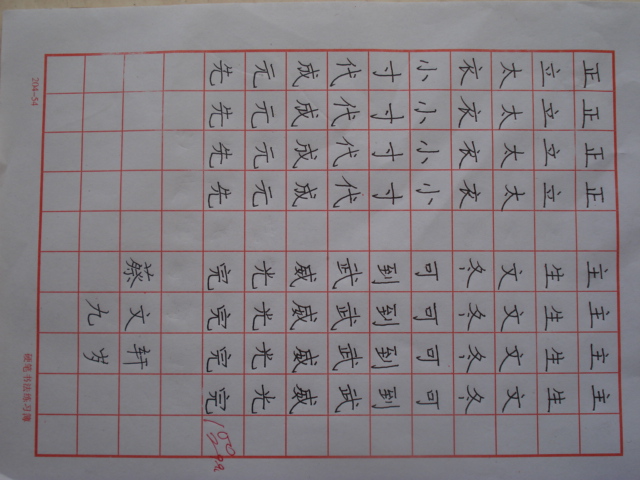 正正正正主主主主
立立立立生生生生
太太太太文文文文
衣衣衣衣冬冬冬冬
小小小小可可可可
寸寸寸寸到到到到
代代代代武武武武
成成成成威威威威
元元元元光光光光
先先先先完完完完
100
蔡文轩
九岁
204-54
硬笔书法练习簿